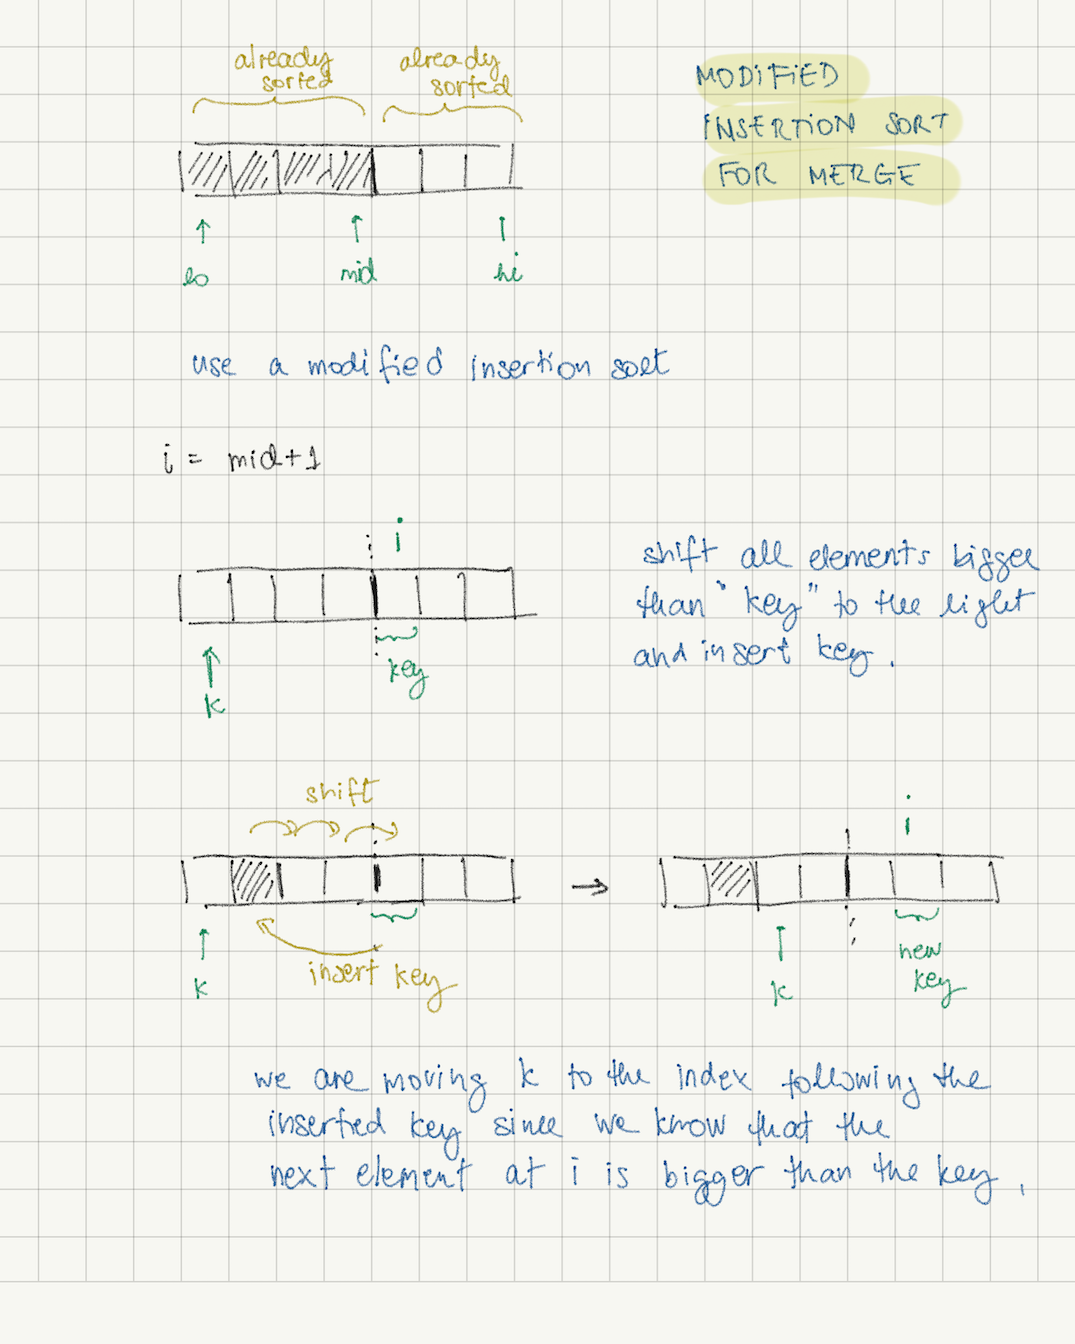 already
sorted
already
sorted
MODIFIED
INSERTION SORT
FOR MERGE
lo
mid
hi
use a modified insertion sort
i = mid+1
i
key
k
shift all elements bigger
than "key" to the right
and insert key.
shift
k
insert key
i
k
new
key
we are moving k to the index following the
inserted key since we know that the
next element at i is bigger than the key.